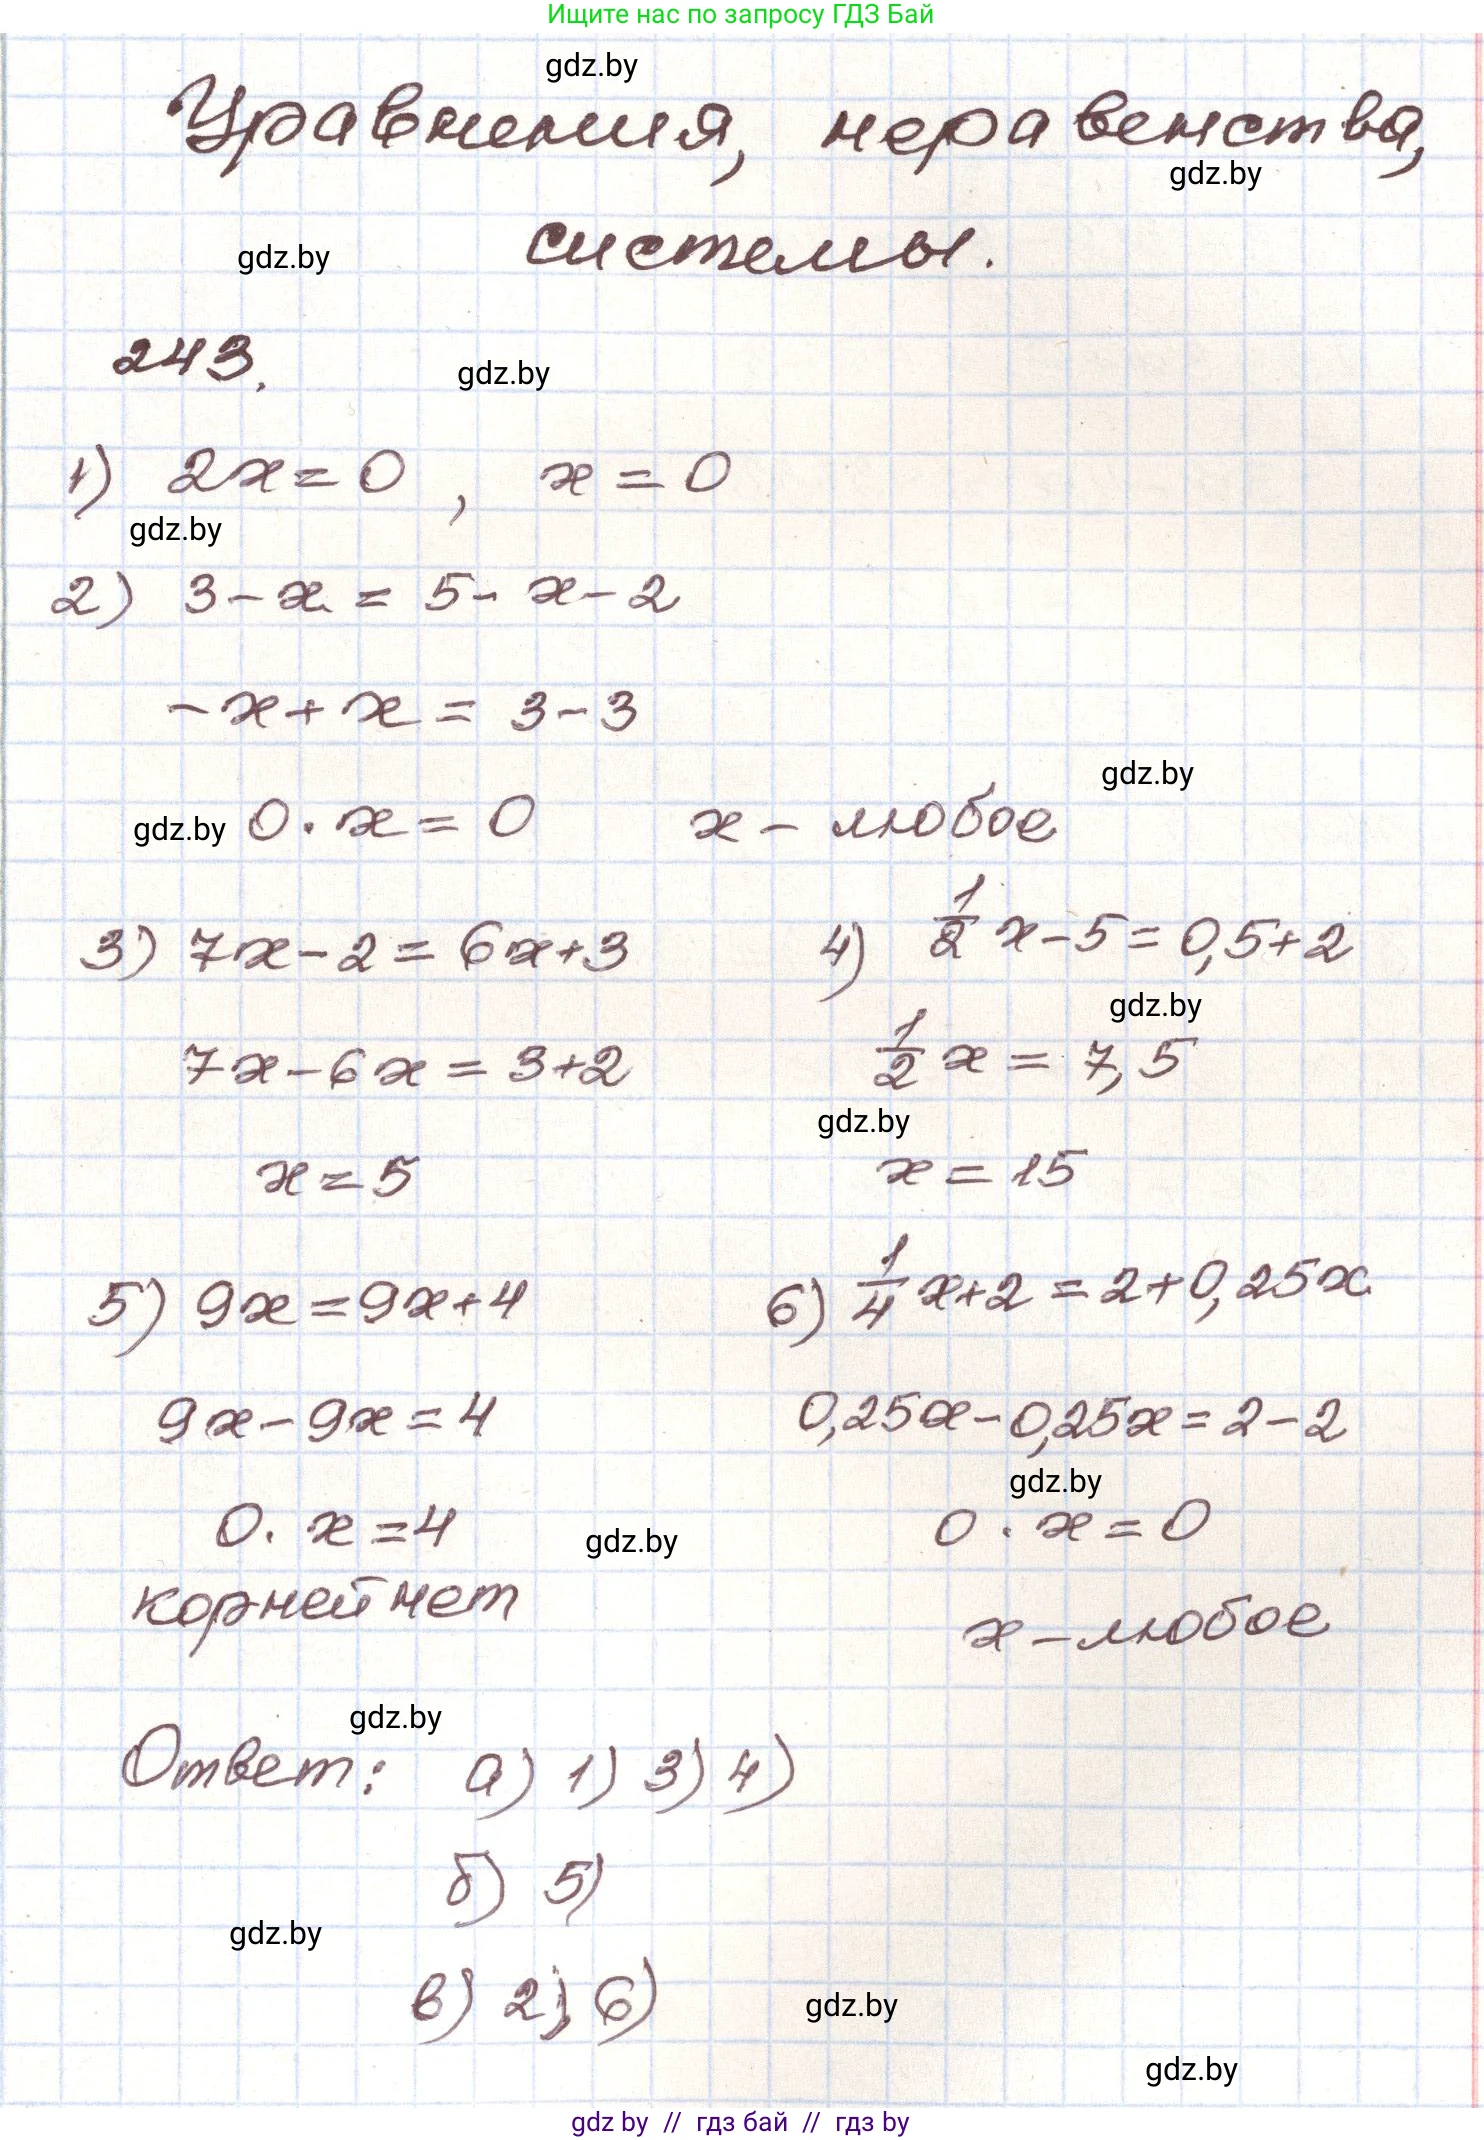 Ищите нас по запросу ГДЗ Бай
gdz.by
Уравнения, неравенства,
gdz.by
gdz.by
системы.
243.
gdz.by
1) 2x = 0 , x = 0
gdz.by
2) 3 - x = 5 - x - 2
- x + x = 3 - 3
gdz.by
gdz.by
0 · x = 0 x - любое
3) 7x - 2 = 6x + 3
4) 1/2 x - 5 = 0,5 + 2
gdz.by
7x - 6x = 3 + 2
1/2 x = 7,5
gdz.by
x = 5
x = 15
5) 9x = 9x + 4
6) 1/4 x + 2 = 2 + 0,25x
9x - 9x = 4
0,25x - 0,25x = 2 - 2
gdz.by
0 · x = 4
gdz.by
0 · x = 0
корней нет
x - любое
gdz.by
Ответ: а) 1) 3) 4)
б) 5)
gdz.by
в) 2); 6)
gdz.by
gdz.by
gdz by // гдз бай // гдз by